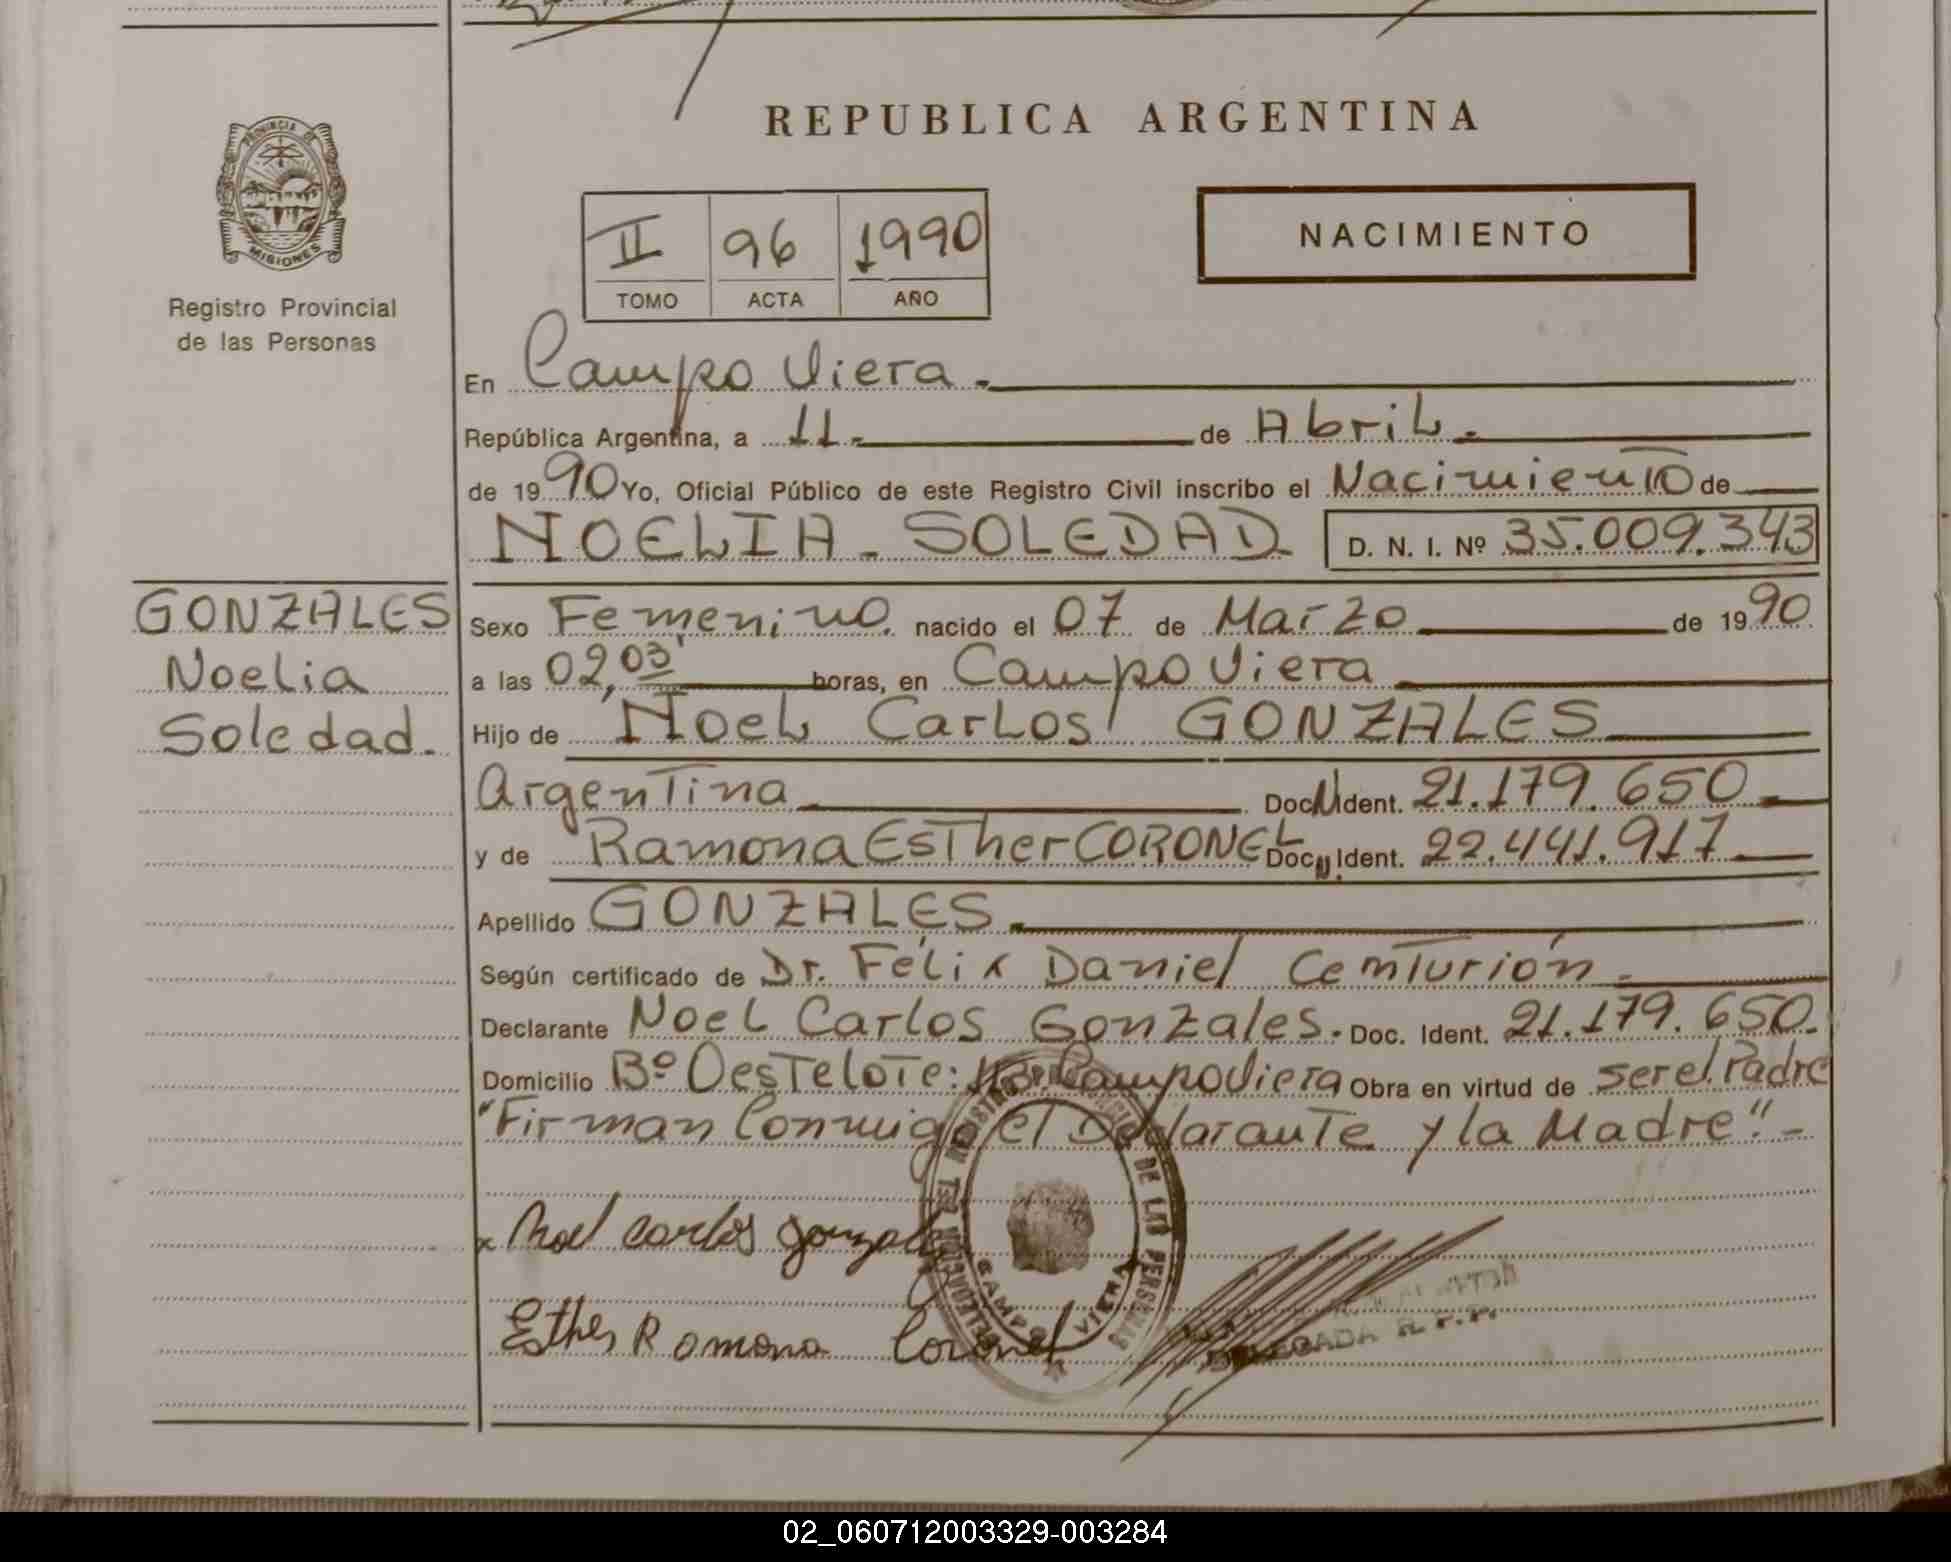 REPUBLICA ARGENTINA
PROVINCIA DE
MISIONES
Registro Provincial
de las Personas
II 96 1990
TOMO ACTA AÑO
NACIMIENTO
En Campo Viera.
República Argentina, a 11. de Abril.
de 1990 Yo, Oficial Público de este Registro Civil inscribo el Nacimiento de
NOELIA - SOLEDAD D. N. I. Nº 35.009.343
GONZALES
Noelia
Soledad.
Sexo Femenino. nacido el 07 de Marzo de 1990
a las 02,03' horas, en Campo Viera
Hijo de Noel Carlos GONZALES
Argentina Doc. N. Ident. 21.179.650
y de Ramona Esther CORONEL Doc. N. Ident. 22.441.917
Apellido GONZALES.
Según certificado de Dr. Félix Daniel Centurión
Declarante Noel Carlos Gonzales. Doc. Ident. 21.179.650.
Domicilio Bº Oeste Lote: Campo Viera Obra en virtud de ser el Padre
"Firman Conmigo el Declarante y la Madre".-
x Noel carlos gonzales
Esther Romona Coronel
DE LAS PERSONAS
CAMPO VIERA
DELEGADA R.P.P.
02_060712003329-003284